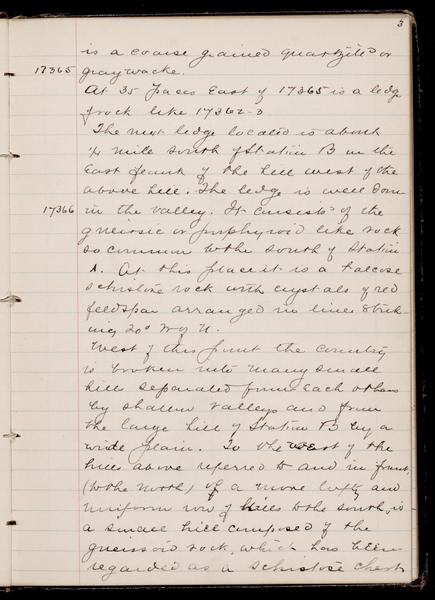 3
is a coarse grained quartzite or
17365 graywacke.
At 35 paces East of 17365 is a ledge
of rock like 17362-3
The next ledge located is about
¼ mile south of Station B on the
East flank of the hill west of the
above hill. The ledge is well down
17366 in the valley. It consists of the
gneissic or porphyroid like rock
so common to the south of Station
A. At this place it is a talcose
schistose rock with crystals of red
feldspar arranged in lines strik-
ing 20° W of N.
West of this point the country
is broken into many small
hills separated from each other
by shallow valleys and from
the large hill of Station B by a
wide plain. To the west of the
hills above referred to and in front,
(to the north) of a more lofty and
uniform row of hills to the south, is
a small hill composed of the
gneissoid rock, which has been
regarded as a schistose chert